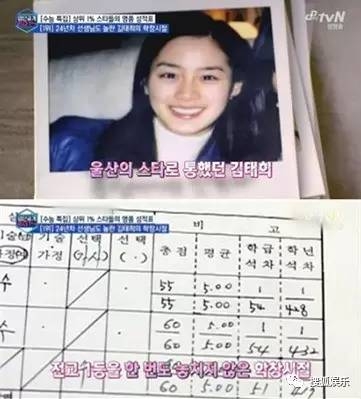 [수능 특집] 상위 1% 스타들의 명품 성적표
[1위] 24년차 선생님도 놀란 김태희의 학창시절
tvN
울산의 스타로 통했던 김태희
[수능 특집] 상위 1% 스타들의 명품 성적표
[1위] 24년차 선생님도 놀란 김태희의 학창시절
비 고
기술 가정
선택
선택 ( . )
총점
평균
학급 석차
학년 석차
수
55 5.00 1/54 1/428
수
60 5.00 1/54 1/432
전교 1등을 한 번도 놓치지 않은 학창시절
60 5.00 51
搜狐娱乐